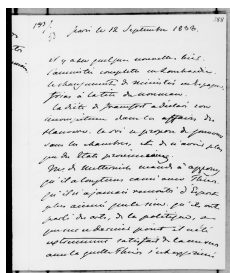 191 188
Paris le 12 Septembre 1838.
il y a eu quelques nouvelles hier.
l'amnistie complète en Lombardie.
le changement de ministère en Espagne,
à la tête du nouveau.
la diète de francfort a déclaré son
incompétence dans les affaires du
Hanovre. le roi se propose de gouverner
sans les chambres, et de n'avoir plus
que des Etats provinciaux.
M. de Metternich mande à appony
qu'il a longtems causé avec Thiers.
qu'il n'a jamais rencontré d'Esprit
plus aimable que le sien, qu'ils ont
parlé des arts, de la politique, et
que sur ce dernier point il a été
extremement satisfait de la mesure
avec laquelle Thiers s'est exprimé